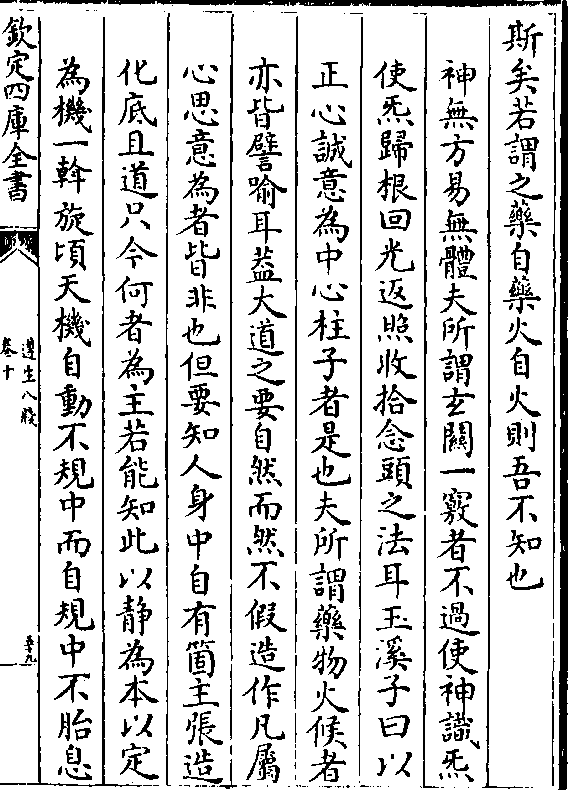 斯矣若謂之藥自藥火自火則吾不知也
神無方易無體夫所謂玄關一竅者不過使神識炁
使炁歸根回光返照收拾念頭之法耳玉溪子曰以
正心誠意為中心柱子者是也夫所謂藥物火候者
亦皆譬喻耳葢大道之要自然而然不假造作凡屬
心思意為者皆非也但要知人身中自有箇主張造
化底且道只今何者為主若能知此以静為本以定
為機一斡旋頃天機自動不規中而自規中不胎息
欽定四庫全書
遵生八牋
卷十
五十九